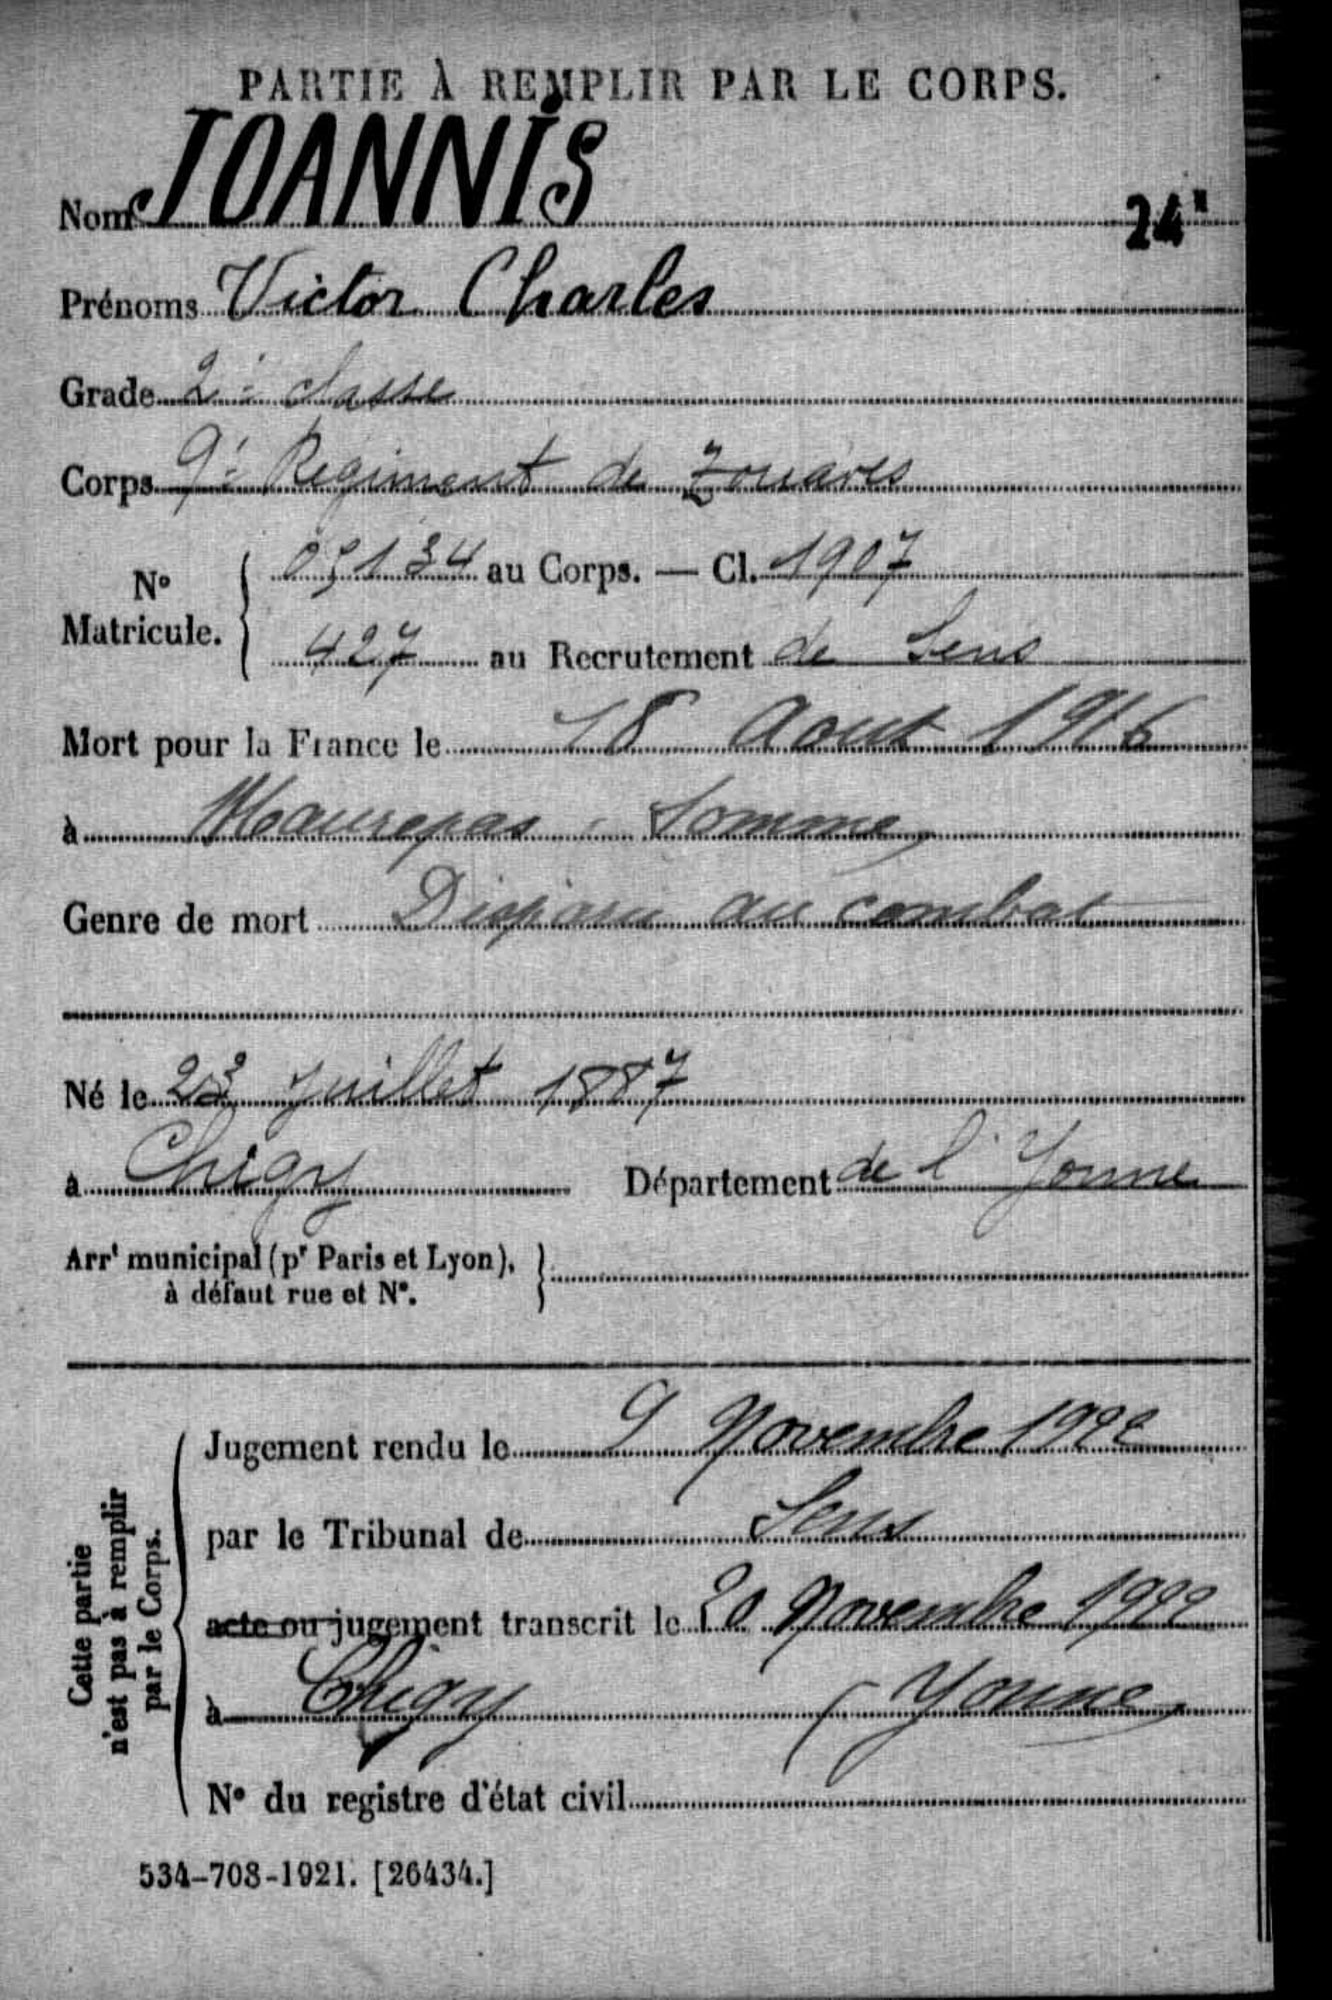 PARTIE À REMPLIR PAR LE CORPS.
Nom JOANNIS
24
Prénoms Victor Charles
Grade 2e classe
Corps 9e Régiment de Zouaves
No Matricule. { 05134 au Corps. — Cl. 1907
427 au Recrutement de Sens
Mort pour la France le 18 Aout 1916
à Maurepas - Somme
Genre de mort Disparu au combat
Né le 23 Juillet 1887
à Chigy Département de l'Yonne
Arrt municipal (pr Paris et Lyon), }
à défaut rue et No.
Cette partie
n'est pas à remplir
par le Corps.
Jugement rendu le 9 Novembre 1922
par le Tribunal de Sens
acte ou jugement transcrit le 20 Novembre 1922
à Chigy (Yonne)
No du registre d'état civil
534-708-1921. [26434.]